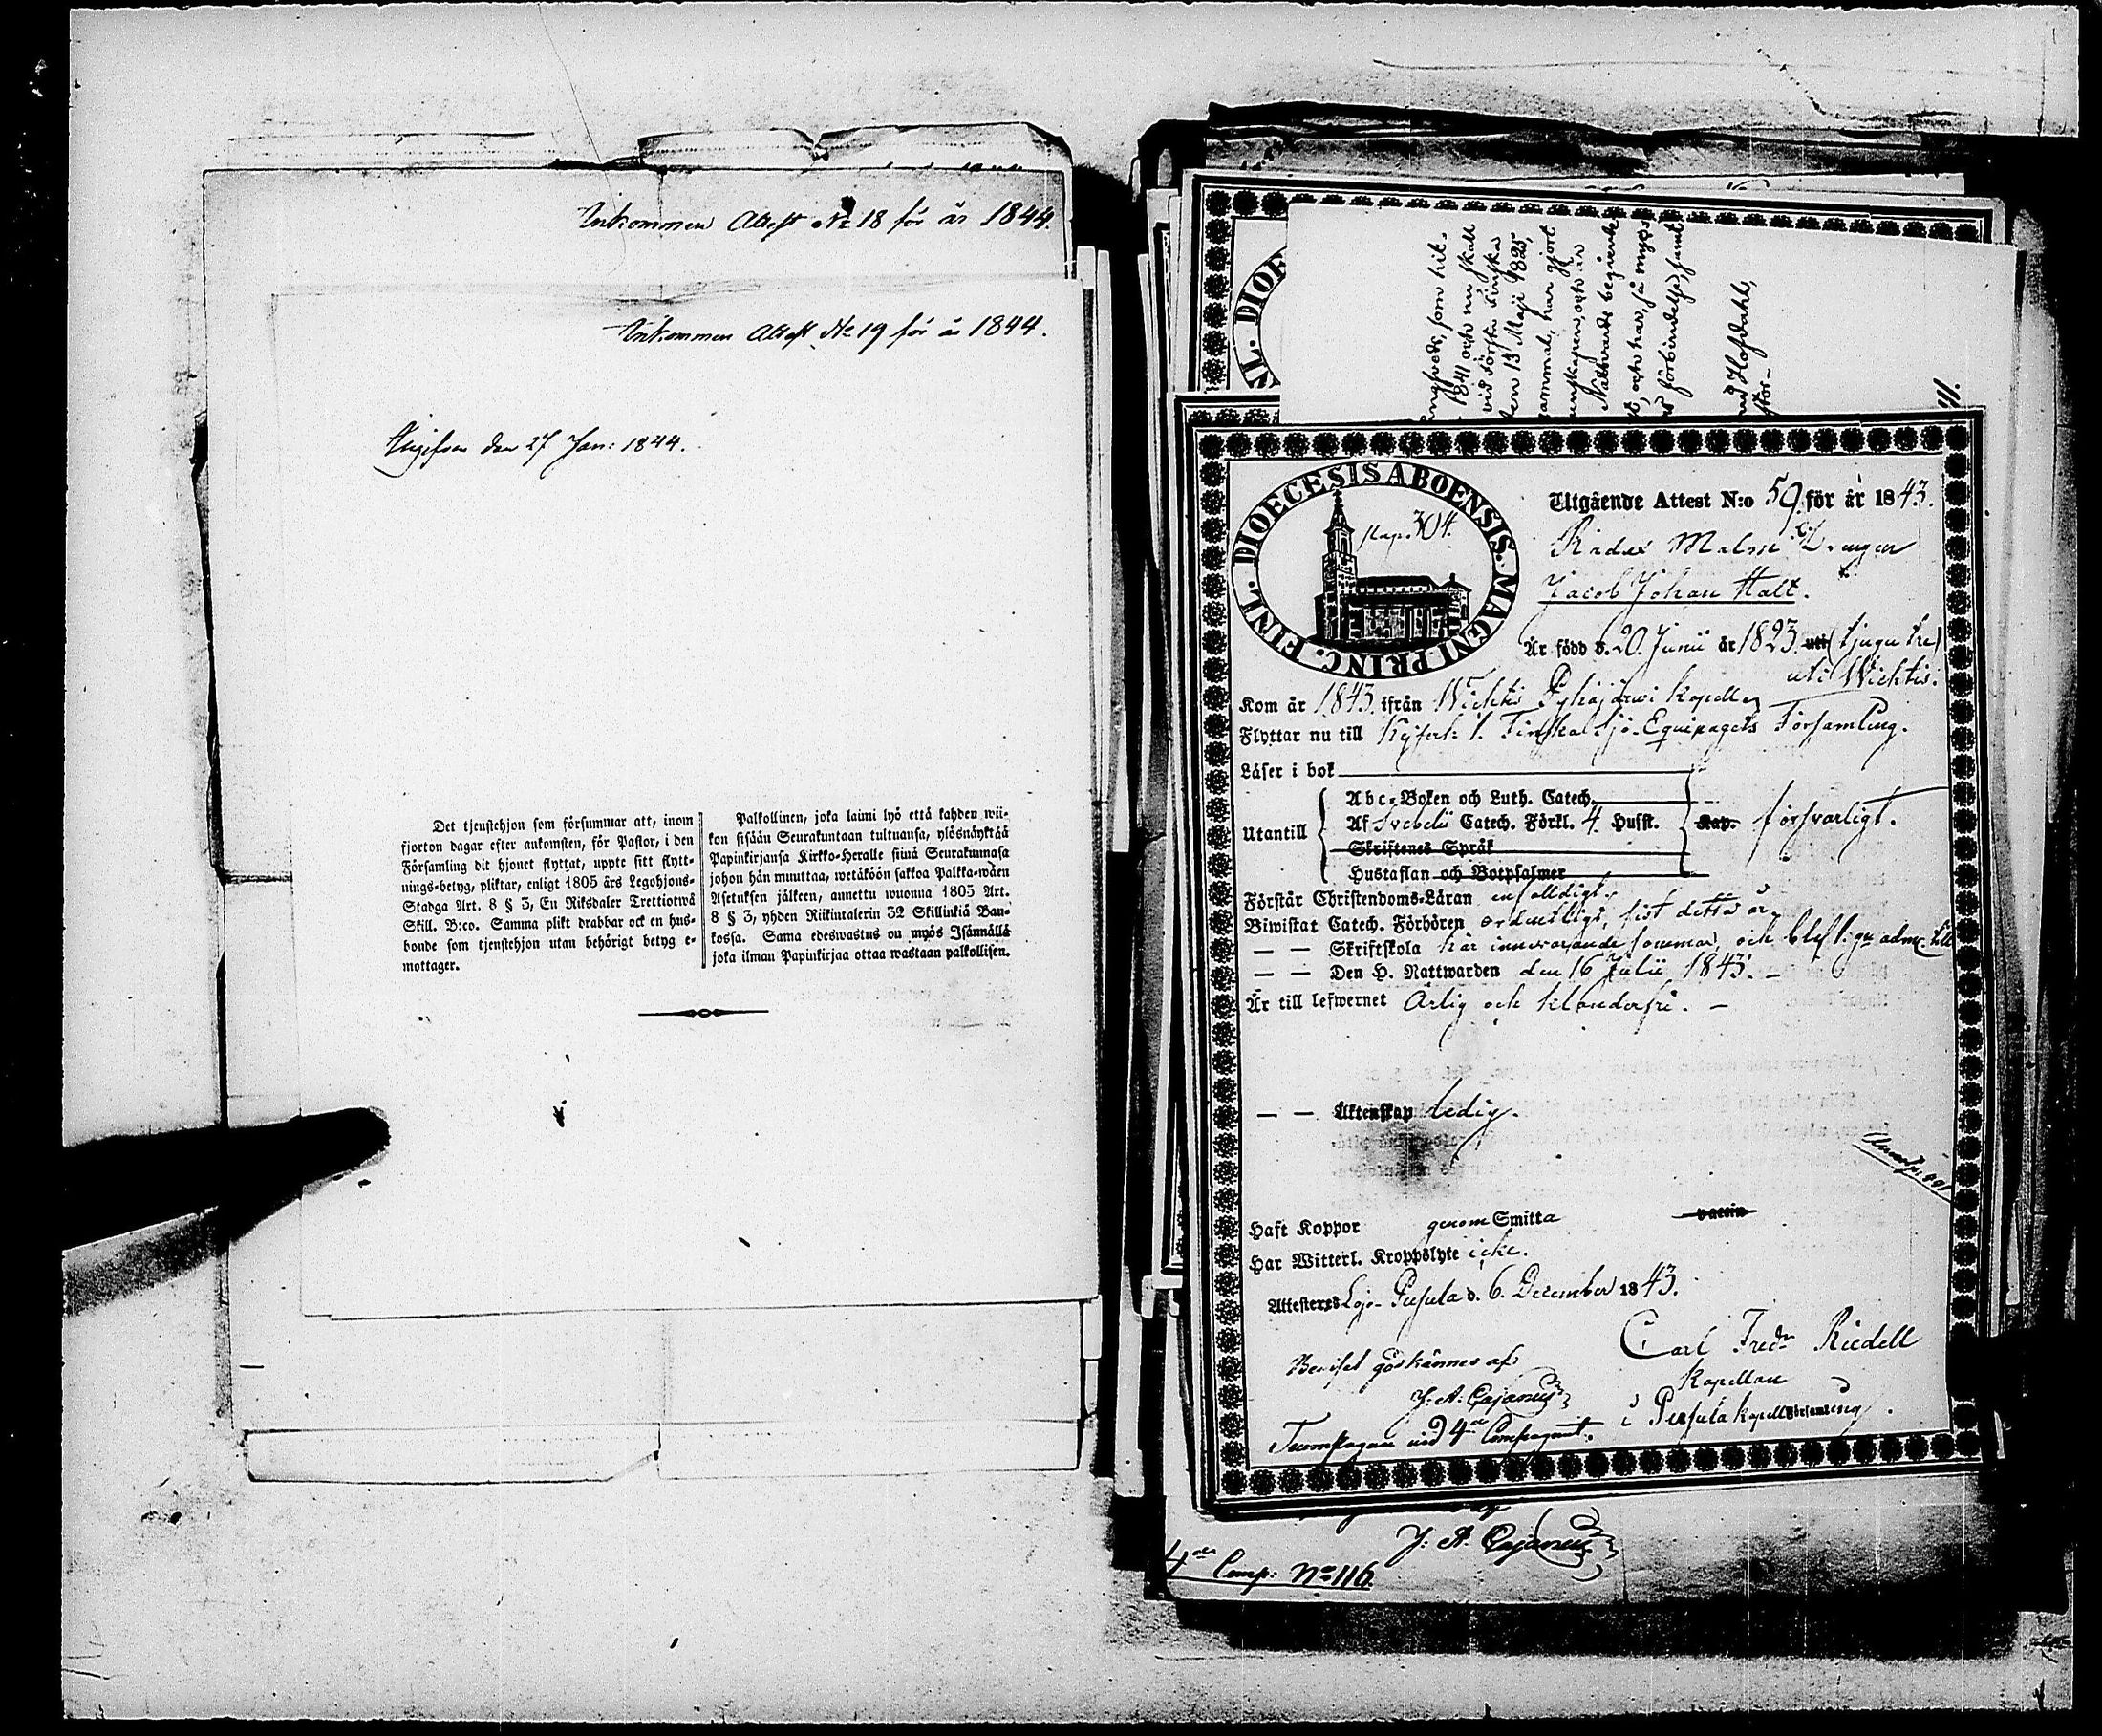 Inkommen Attest No 18 för år 1844.
Inkommen Attest No 19 för år 1844.
den 27 Jan: 1844.
Det tjenstehjon som försummar att, inom
fjorton dagar efter ankomsten, för Pastor, i den
Församling dit hjonet flyttat, uppte sitt flytt-
nings-betyg, pliktar, enligt 1805 års Legohjons-
Stadga Art. 8 § 3, En Riksdaler Trettiotwå
Skill. B:co. Samma plikt drabbar ock en hus-
bonde som tjenstehjon utan behörigt betyg e-
mottager.
Palkollinen, joka laimi lyö että kahden wii-
kon sisään Seurakuntaan tultuansa, ylösnäyttää
Papinkirjansa Kirkko-Heralle siinä Seurakunnasa
johon hän muuttaa, wetäköön sakkoa Palkka-wäen
Asetuksen jälkeen, annettu wuonna 1805 Art.
8 § 3, yhden Riikintalerin 32 Skillinkiä Ban-
kossa. Sama edeswastus on myös Isännällä
joka ilman Papinkirjaa ottaa wastaan palkollisen.
ngsved, som hit.
1841 och nu skall
vid Första Finska
den 13 Maji 1825,
ammal, har gjort
unskapen, och är
Nattvards begående
, och har, så myc
förbindelse, samt
Hofdahl,
DIOECESIS ABOENSIS. MAGNI PRINC. FINL.
pag. 304.
Utgående Attest N:o 59 för år 1843.
Malm Drengen
Jacob Johan Halt.
Är född d. 20 Junii år 1823. uti (tjugu tre)
uti Wichtis.
Kom år 1843. ifrån Wichtis Pyhäjärwi Kapell
Flyttar nu till Kejserl: 1. Finska Sjö-Equipagets Församling.
Läser i bok
Abc-Boken och Luth. Catech.
Utantill Af Svebelii Catech. Förkl. 4. Husst. Kap. försvarligt.
Skriftenes Språk
Hustaflan och Botpsalmer
Förstår Christendoms-Läran enfalldigt.
Biwistat Catech. Förhören ordentligt, sist detta år.
— — Skriftskola här innevarande sommar, och blef 1:a g. adm. till
— — Den H. Nattwarden den 16 Julii 1843. —
Är till lefwernet Ärlig och klanderfri. —
— — Äktenskap ledig.
Haft Koppor genom Smitta vaccin
Har Witterl. Kroppslyte icke.
Attesteres Lojo Pusula d. 6. December 1843.
Carl Fredr Riedell
Kapellan
i Pusula kapellförsamling.
Beviset godkännes af
J: A: Cajanus
vid 4de Compagniet.
J: A. Cajanus
4de Comp: No 116.